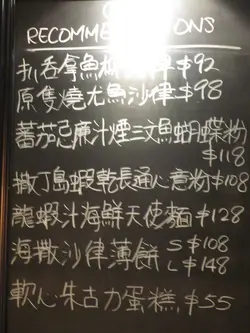 RECOMME ONS
扒吞拿魚 $92
原隻燒尤魚沙律 $98
蕃茄忌廉汁煙三文魚蝴蝶粉
$118
撒丁島蝦乾長通心意粉 $108
龍蝦汁海鮮天使麵 $128
海撒沙律薄餅 S $108
L $148
軟心朱古力蛋糕 $55